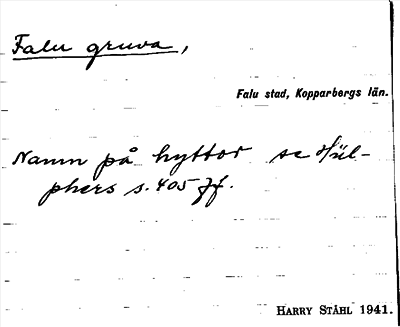 Falu gruva,
Falu stad, Kopparbergs län.
Namn på hyttor se Hül-
phers s. 405 ff.
HARRY STÅHL 1941.